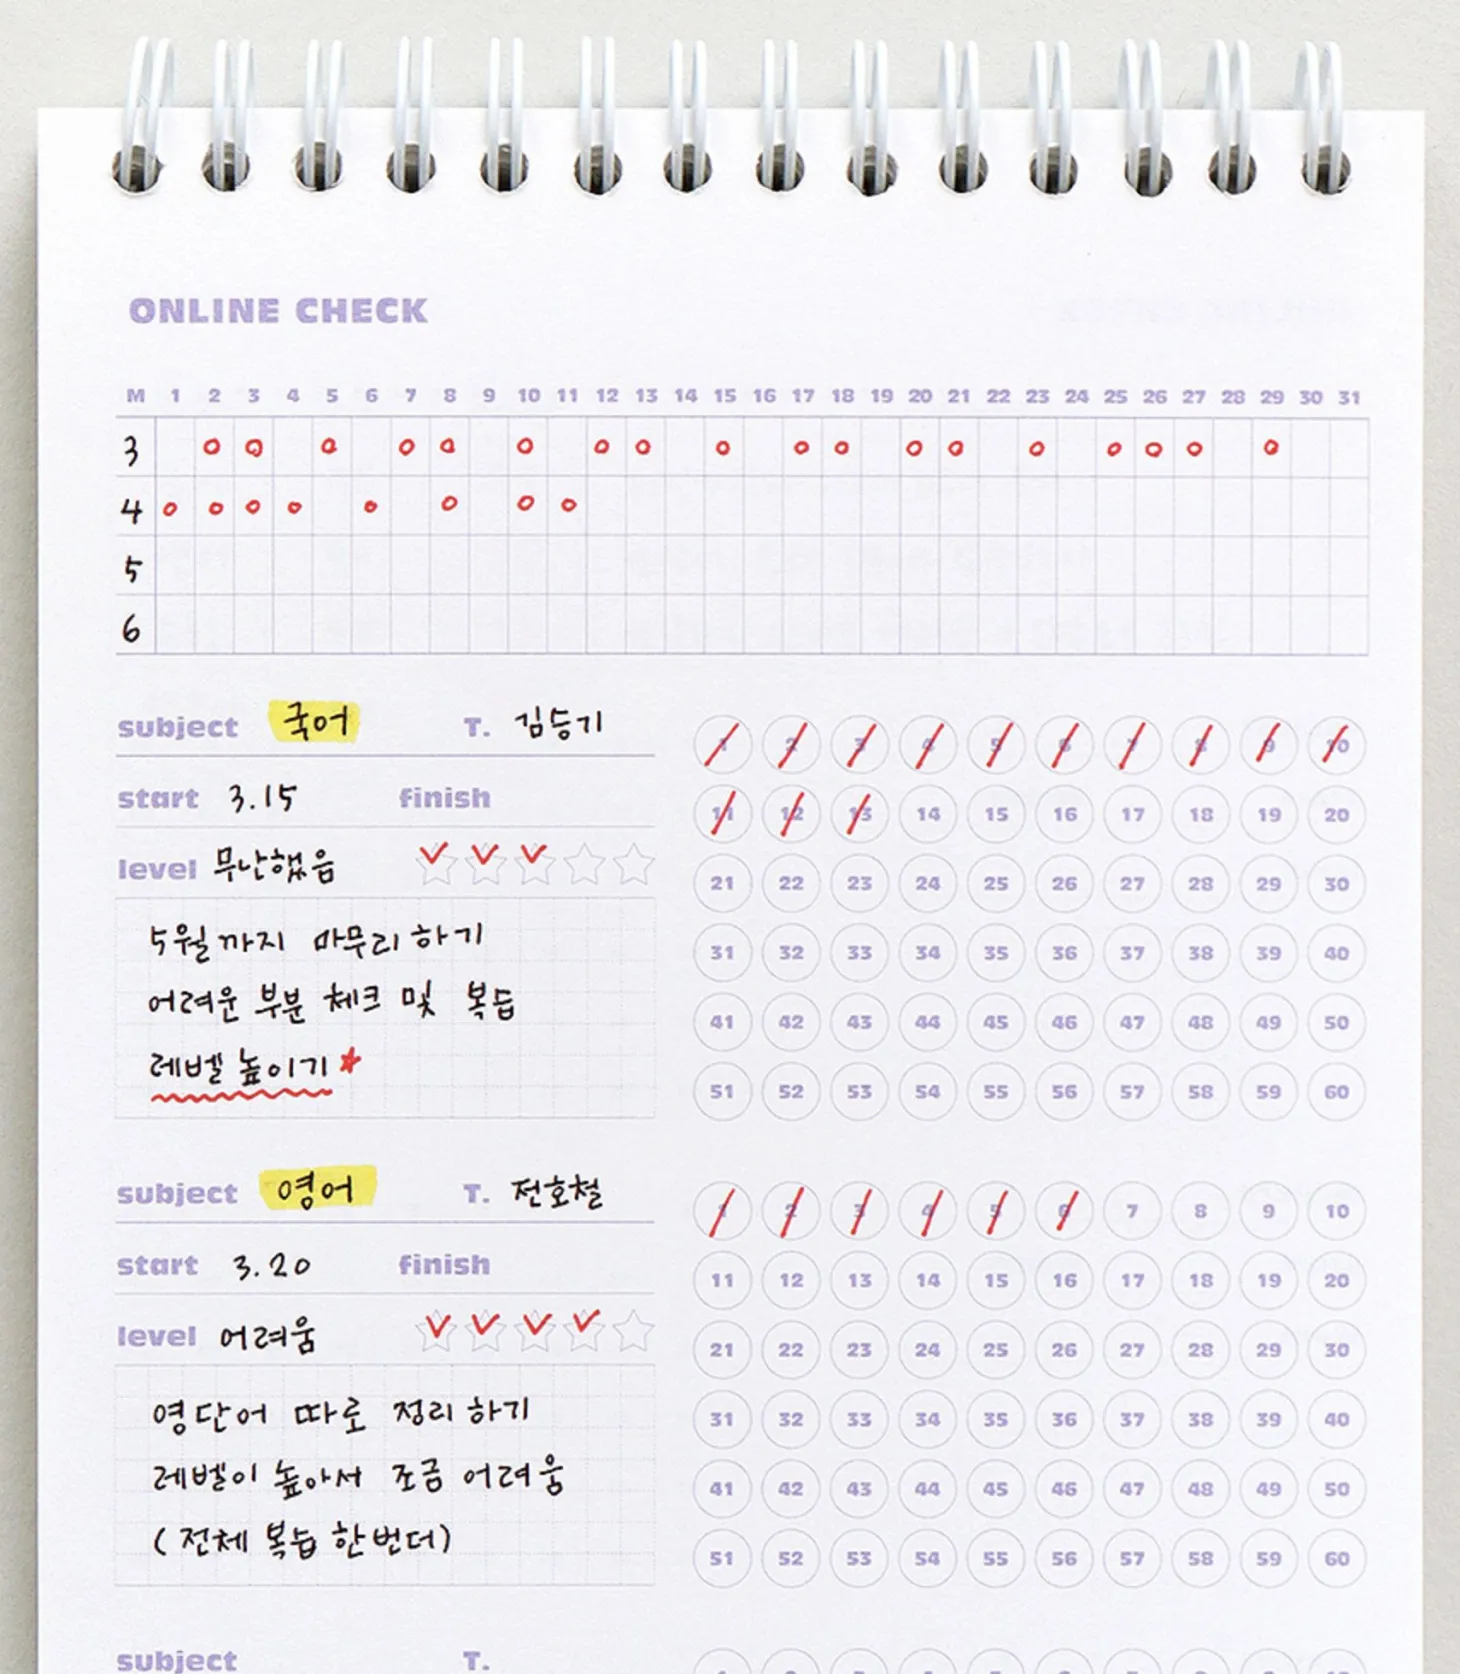 ONLINE CHECK
M 1 2 3 4 5 6 7 8 9 10 11 12 13 14 15 16 17 18 19 20 21 22 23 24 25 26 27 28 29 30 31
3
4
5
6
subject 국어 T. 김승기
start 3.15 finish
level 무난했음
5월까지 마무리하기
어려운 부분 체크 및 복습
레벨 높이기
1 2 3 4 5 6 7 8 9 10
11 12 13 14 15 16 17 18 19 20
21 22 23 24 25 26 27 28 29 30
31 32 33 34 35 36 37 38 39 40
41 42 43 44 45 46 47 48 49 50
51 52 53 54 55 56 57 58 59 60
subject 영어 T. 전호철
start 3.20 finish
level 어려움
영단어 따로 정리하기
레벨이 높아서 조금 어려움
(전체 복습 한번더)
1 2 3 4 5 6 7 8 9 10
11 12 13 14 15 16 17 18 19 20
21 22 23 24 25 26 27 28 29 30
31 32 33 34 35 36 37 38 39 40
41 42 43 44 45 46 47 48 49 50
51 52 53 54 55 56 57 58 59 60
subject T.